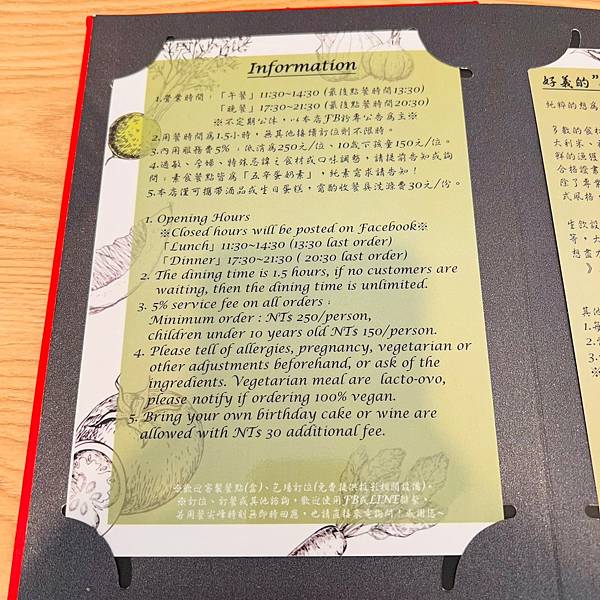 Information
1.營業時間：「午餐」11:30~14:30 (最後點餐時間13:30)
「晚餐」17:30~21:30 (最後點餐時間20:30)
※不定期公休，以本店FB粉專公告為主※
2.用餐時間為1.5小時，無其他接續訂位則不限時。
3.內用服務費5%；低消為250元/位、10歲下孩童150元/位。
4.過敏、孕婦、特殊忌諱之食材或口味調整，請提前告知或詢
問；素食餐點皆為「五辛蛋奶素」，純素需求請告知！
5.本店僅可攜帶酒品或生日蛋糕，需酌收餐具洗滌費30元/份。
1. Opening Hours
※Closed hours will be posted on Facebook※
「Lunch」11:30~14:30 (13:30 last order)
「Dinner」17:30~21:30 ( 20:30 last order)
2. The dining time is 1.5 hours, if no customers are
waiting, then the dining time is unlimited.
3. 5% service fee on all orders ;
Minimum order : NT$ 250/person,
children under 10 years old NT$ 150/person.
4. Please tell of allergies, pregnancy, vegetarian or
other adjustments beforehand, or ask of the
ingredients. Vegetarian meal are lacto-ovo,
please notify if ordering 100% vegan.
5. Bring your own birthday cake or wine are
allowed with NT$ 30 additional fee.
※歡迎客製餐點(盒)、包場訂位(免費提供投影相關設備)。
若訂位、訂餐或其他諮詢，歡迎使用FB或LINE聯繫。
若用餐尖峰時刻無即時回應，也請直接來電詢問！感謝您~
好義的"
純粹的想為
多數的食材
大利米、
鮮的漁獲
合格證書
除了專業
式風格，
生飲設
等，大
想盡力
》
其他
1.每
2.
3.
※